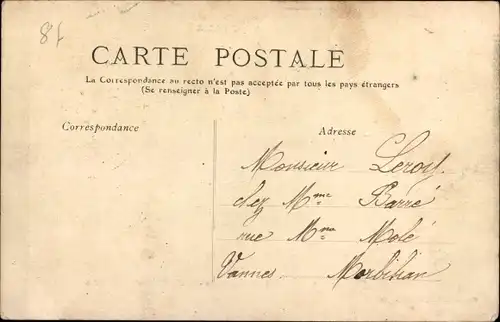 78
CARTE POSTALE
La Correspondance au recto n'est pas acceptée par tous les pays étrangers
(Se renseigner à la Poste)
Correspondance
Adresse
Monsieur Leroy
chez Mme Barré
rue Mme Molé
Vannes. Morbihan